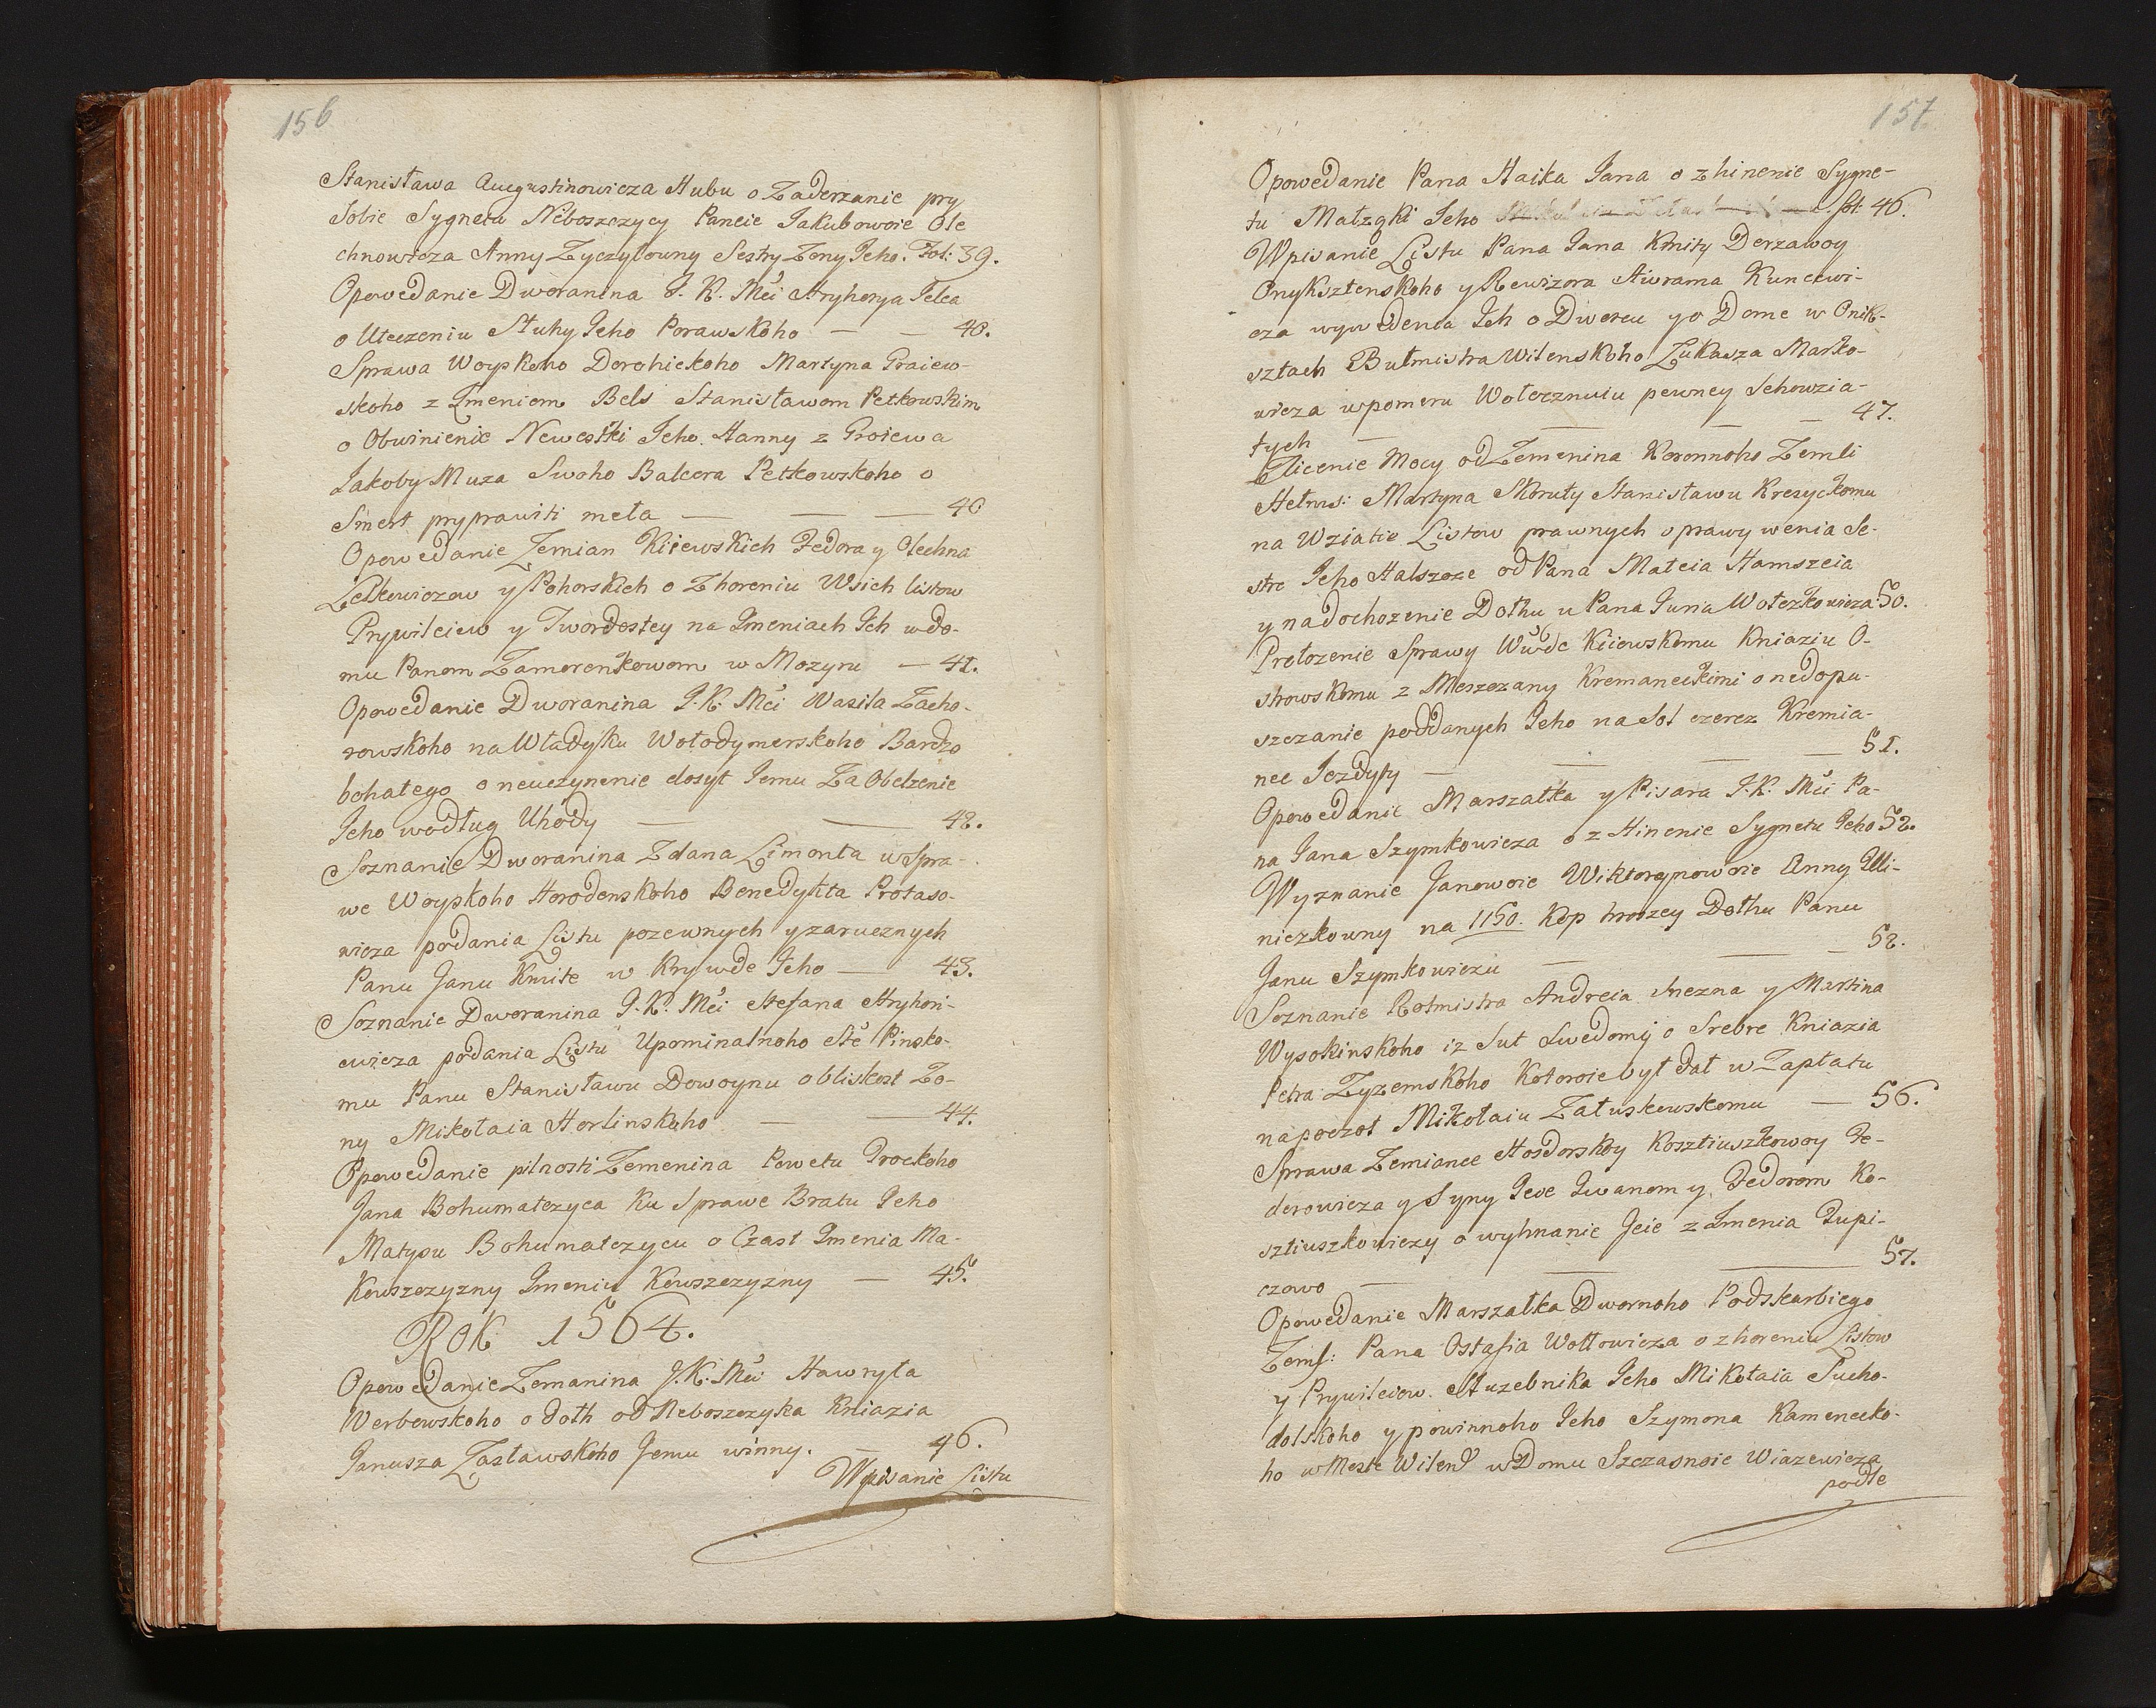 156
Stanisława Augustinowicza Hubu o Zaderzanie pry
Sobie Sygneta Neboszczycy Paneie Jakubowoie Ole
chnowicza Anny Zyczylowny Sestry Zony Jeho. Fol: 39.
Opowedanie Dworanina J. K. Mći Hryhorya Jelca
o Uteczeniu Sluhy Jeho Porawskoho — — 40.
Sprawa Woyskoho Dorohickoho Martyna Graiew-
skoho z Imeniom Bels Stanisławom Petkowskim
o Obwinienie Newestki Jeho Hanny z Groiewa
Jakoby Muza Swoho Balcera Petkowskoho o
Smert pryprawiti meła — — — 40
Opowedanie Zemian Kiiewskich Fedora y Olechna
Lelkowiczow y Pohorskich o Zhoreniu Wsich listow
Prywileiew y Twordostey na Imeniach Ich w do-
mu Panom Zamorenkowom w Mozyru — 41.
Opowedanie Dworanina J. K. Mći Wasila Zacho-
rowskoho na Władyku Wołodymerskoho Bardzo
bohatego o neuczynenie dosyt Jemu Za Obelzenie
Jeho wodług Uhody — — 42.
Soznanie Dworanina Zdana Limonta w Spra-
we Woyskoho Horodenskoho Benedykta Protaso-
wicza podania Listu pozewnych y zarucznych
Panu Janu Kmite w Krywde Jeho — 43.
Soznanie Dworanina J. K. Mći Stefana Hryhori-
ewicza podania Listu Upominalnoho Stć Pinsko-
mu Panu Stanisławu Dowoynu o bliskost Zo-
ny Mikołaia Horlinskoho — — 44.
Opowedanie pilnosti Zemenina Powetu Trockoho
Jana Bohumatczyca Ku Sprawe Bratu Jeho
Matysu Bohumatczycu o Czast Imenia Ma-
Kowszczyzny Imeniu Kowszczyzny — 45.
Rok 1564.
Opowedanie Zemanina J. K. Mći Hawryła
Werbowskoho o dolh od Neboszczyka Kniazia
Janusza Zasławskoho Jemu winny. — 46.
Wpisanie Listu
157
Opowedanie Pana Haika Jana o zhinenie Sygne-
tu Małzgki Jeho fol: 46.
Wpisanie Listu Pana Jana Kmity Derzawcy
Onyksztenskoho y Rewizora Awrama Kuncewi-
cza wywedenia Ich o Dworcu y o Dome w Onik-
sztach Bułmistra Wilenskoho Łukasza Marko-
wicza w pomeru Wołcznuiu pewney Sehowzia-
tych — — — — 47.
Zlicenie Mocy od Zemenina Koronnoho Zemli
Hełms: Martyna Skoruty Stanisławu Kresyckomu
na Wziatie Listow prawnych o prawy wenia Se-
stre Jeho Halszce od Pana Mateia Hamszeia
y na dochozenie Dolhu u Pana Juria Wołczkowicza. 50.
Prełozenie Sprawy Wwde Kiiewskomu Kniaziu O-
strowskomu z Meszczany Kremaneckimi o nedopu-
szczanie poddanych Jeho na Sol czerez Kremia-
nec Jezdyty — — — — 51.
Opowedanie Marszałka y Pisara J. K. Mći Pa-
na Jana Szymkowicza o z Hinenie Sygnetu Jeho 52.
Wyznanie Janowoie Wiktorynowoie Anny Illi-
niczkowny na 1150. Kop hroszey Dolhu Panu
Janu Szymkowiczu — — — 52.
Soznanie Rotmistra Andreia Inezna y Martina
Wysokinskoho iz Sut Swedomy o Srebre Kniazia
Petra Zyzemskoho Kotoroie był dał w Zapłatu
na poczot Mikołaiu Załuskowskomu — 56.
Sprawa Zemiance Hosdorskoy Kosztiuszkowoy Fe-
derowicza y Syny Jeie Iwanom y Fedorom Ko-
sztiuszkowiczy o wyhnanie Jeie z Imenia Tupi-
czowo — — — 57.
Opowedanie Marszałka Dwornoho Podskarbiego
Zems: Pana Ostafia Wołłowicza o zhoreniu Listow
y Prywileiow. Słuzebnika Jeho Mikołaia Sucho-
dolskoho y powinnoho Jeho Szymona Kamenecko-
ho w Meste Wilens w Domu Szczasnoie Wiazewicza
podle